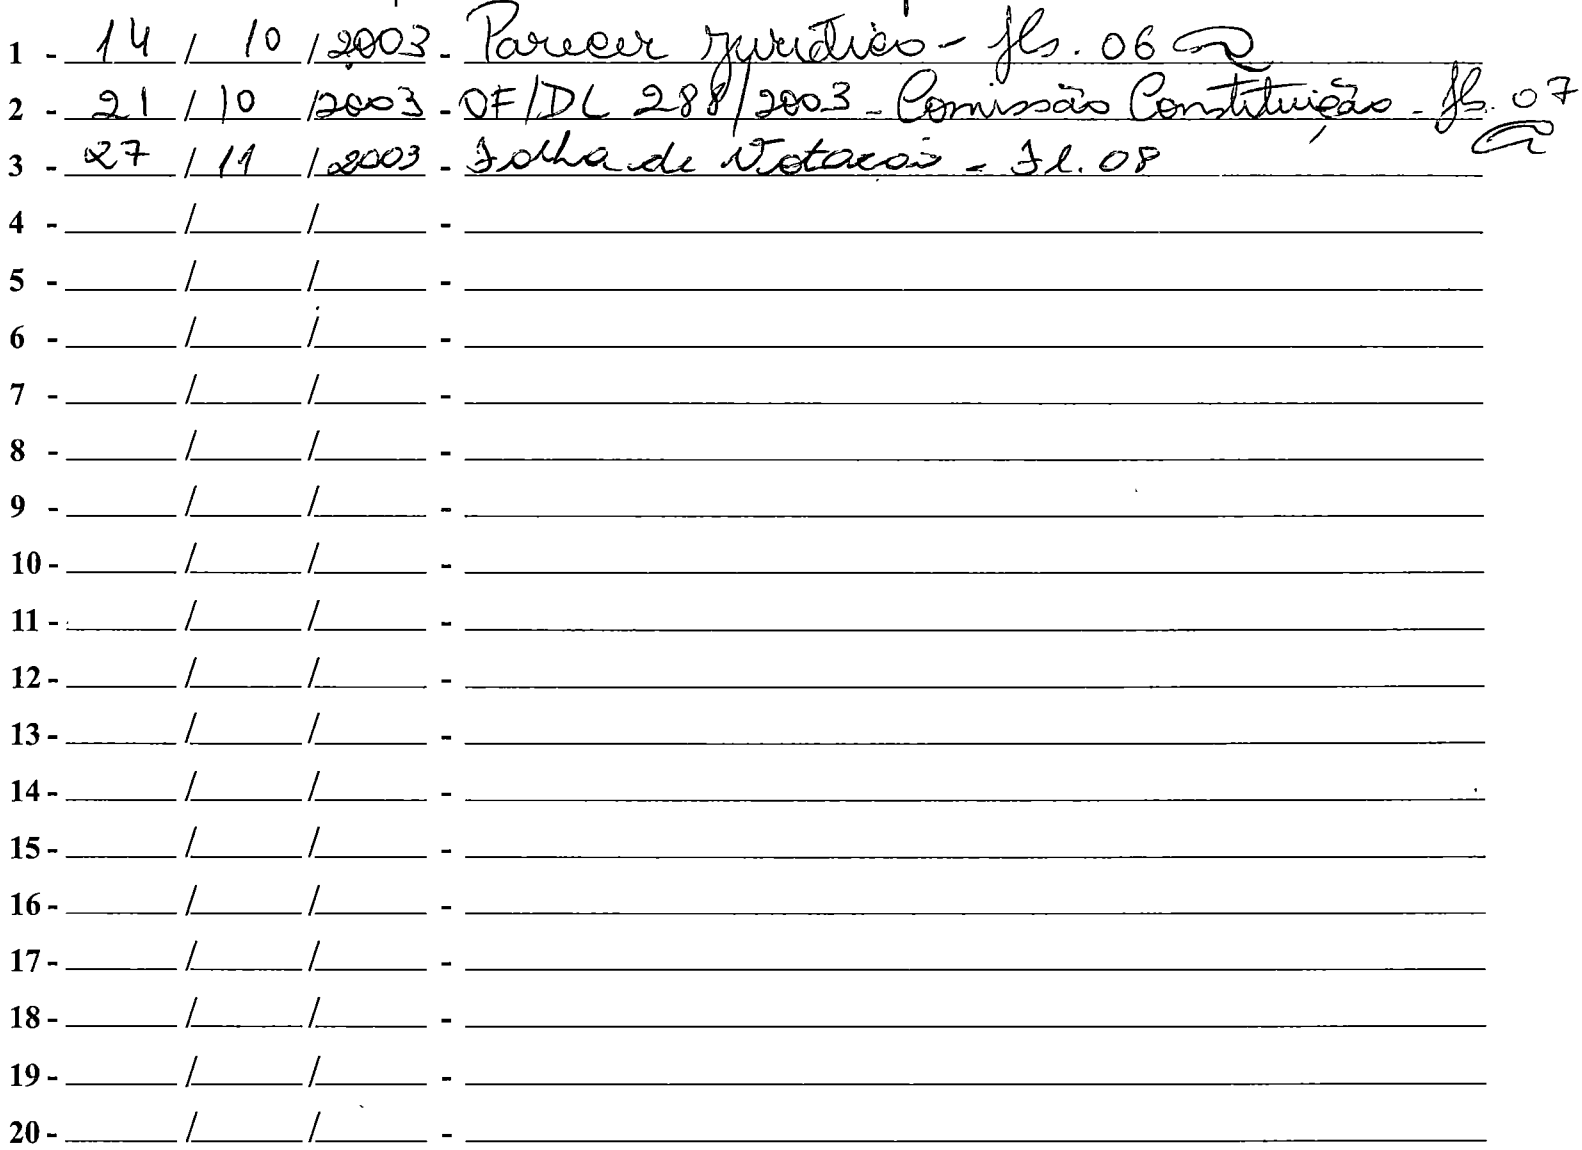 1 - 14 / 10 / 2003 - Parecer Jurídico - fls. 06
2 - 21 / 10 / 2003 - OF/DL 288/2003 - Comissão Constituição - fls. 07
3 - 27 / 11 / 2003 - Folha de Votacão - Fl. 08
4 - ____ / ____ / ____ - ____
5 - ____ / ____ / ____ - ____
6 - ____ / ____ / ____ - ____
7 - ____ / ____ / ____ - ____
8 - ____ / ____ / ____ - ____
9 - ____ / ____ / ____ - ____
10 - ____ / ____ / ____ - ____
11 - ____ / ____ / ____ - ____
12 - ____ / ____ / ____ - ____
13 - ____ / ____ / ____ - ____
14 - ____ / ____ / ____ - ____
15 - ____ / ____ / ____ - ____
16 - ____ / ____ / ____ - ____
17 - ____ / ____ / ____ - ____
18 - ____ / ____ / ____ - ____
19 - ____ / ____ / ____ - ____
20 - ____ / ____ / ____ - ____